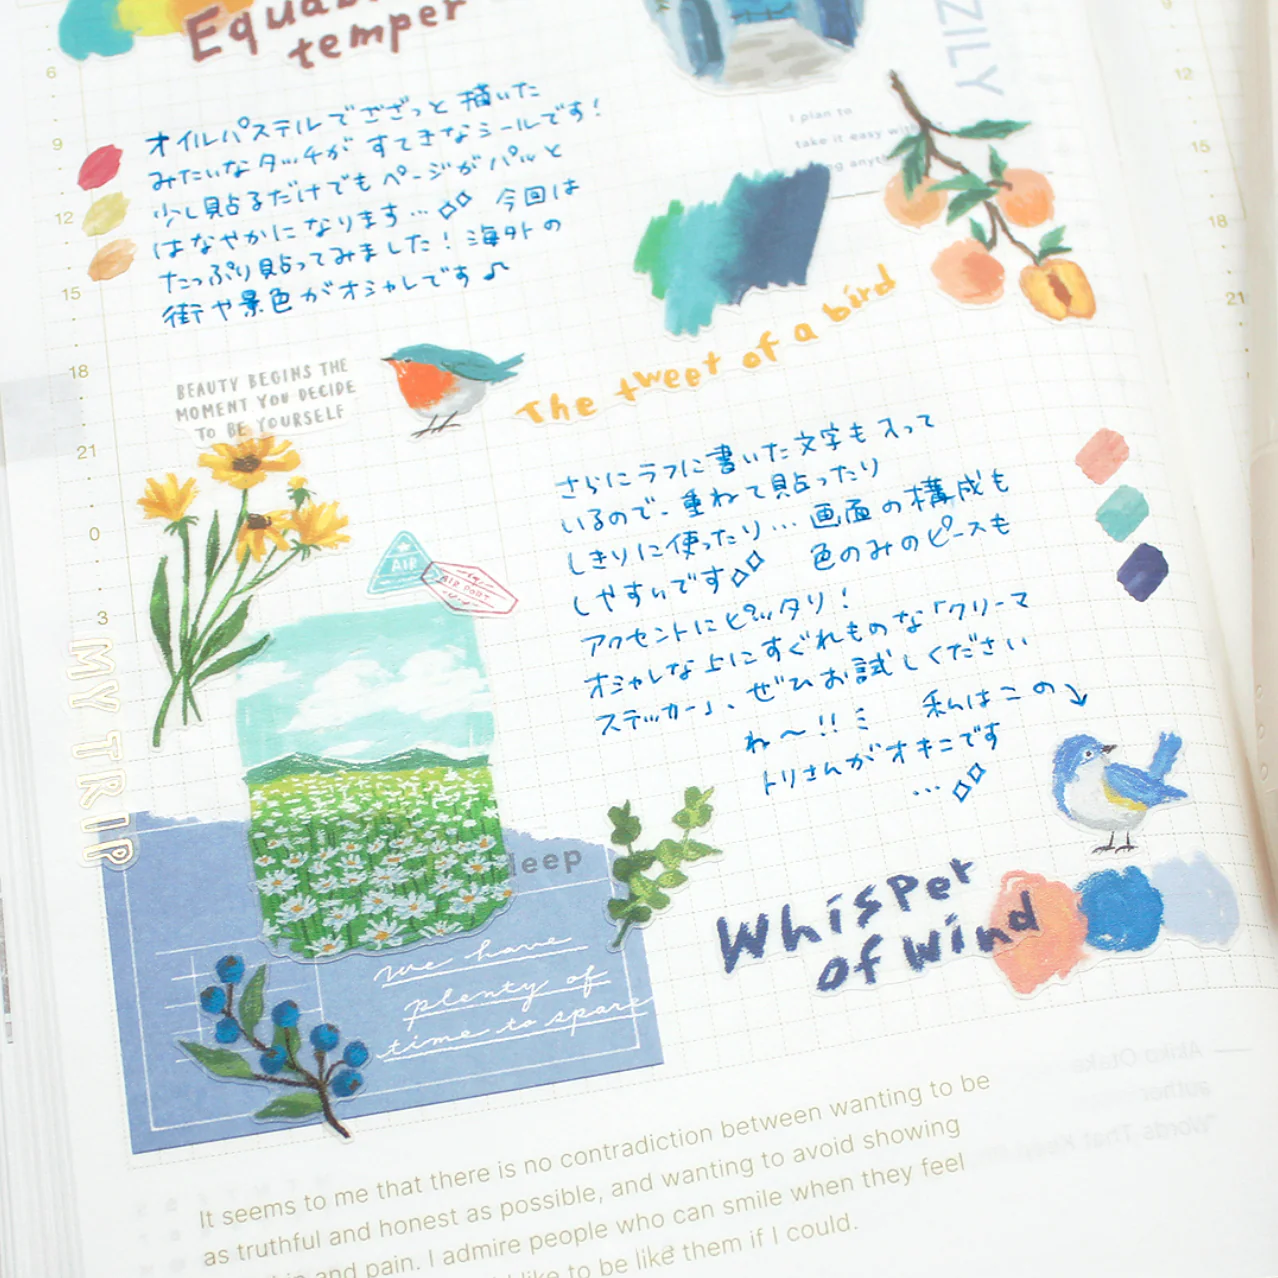 temper
6
9
12
15
18
21
0
3
オイルパステルでござっと描いた
みたいなタッチがすてきなシールです！
少し貼るだけでもページがパッと
はなやかになります… 今回は
たっぷり貼ってみました！海外の
街や景色がオシャレです♪
ZILY
I plan to
take it easy
12
15
18
21
BEAUTY BEGINS THE
MOMENT YOU DECIDE
TO BE YOURSELF
The tweet of a bird
さらにラフに書いた文字も入って
いるので、重ねて貼ったり
しきりに使ったり… 画面の構成も
しやすいです 色のみのピースも
アクセントにピッタリ！
オシャレな上にすぐれものな「クリーマ
ステッカー」、ぜひお試しください
ね〜!! 私はこの↘
トリさんがオキニです
…
AIR
AIR PORT
MY TRIP
deep
we have
plenty of
time to spare
Whisper
of Wind
It seems to me that there is no contradiction between wanting to be
as truthful and honest as possible, and wanting to avoid showing
and pain. I admire people who can smile when they feel
like to be like them if I could.